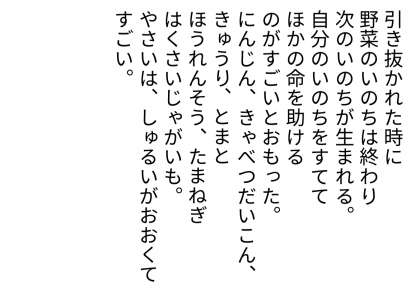 引き抜かれた時に
野菜のいのちは終わり
次のいのちが生まれる。
自分のいのちをすてて
ほかの命を助ける
のがすごいとおもった。
にんじん、きゃべつだいこん、
きゅうり、とまと
ほうれんそう、たまねぎ
はくさいじゃがいも。
やさいは、しゅるいがおおくて
すごい。